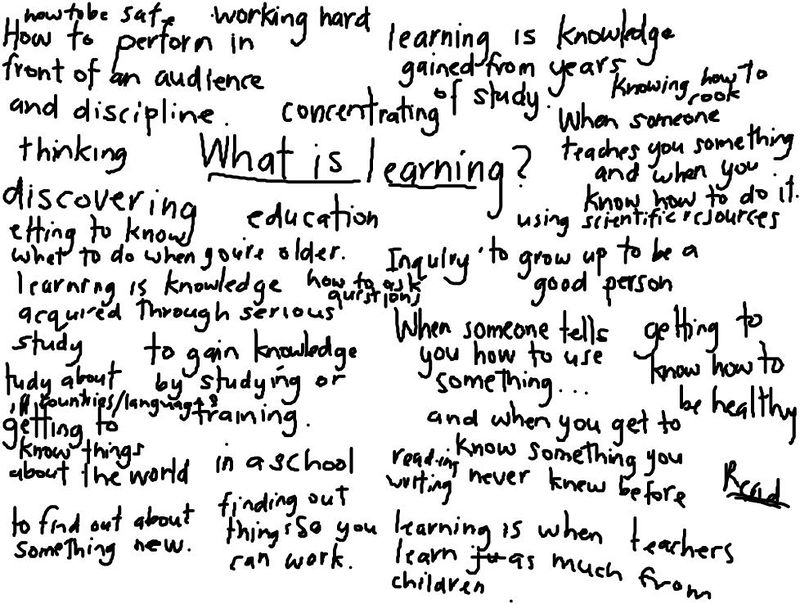 how to be safe
working hard
How to perform in
front of an audience
and discipline.
learning is knowledge
gained from years
of study.
knowing how to
cook
concentrating
thinking
What is learning?
When someone
teaches you something
and when you
know how to do it.
discovering
education
using scientific rsources
etting to know
what to do when you're older.
Inquiry
to grow up to be a
good person
learning is knowledge
acquired through serious
study
how to ask
questions
to gain knowledge
by studying or
training.
When someone tells
you how to use
something...
and when you get to
know something you
never knew before
getting to
know how to
be healthy
tudy about
countries/languages
getting to
know things
about the world
in a school
reading
writing
Read
to find out about
something new.
finding out
things so you
can work.
learning is when teachers
learn as much from
children